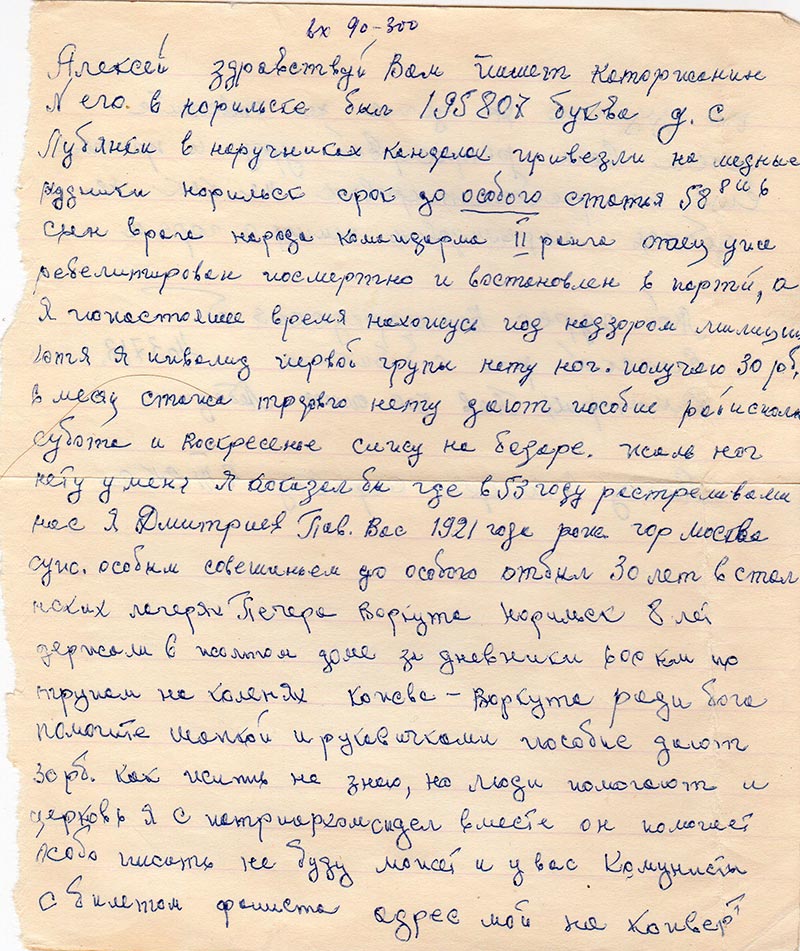 вх 90-300
Алексей здравствуй Вам пишет Каторжанин
№ его в норильске был 195807 буква д. с
Лубянки в наручниках кандалах привезли на медные
рудники норильск срок до особого статья 58 8 и в
сын врага народа командарма II ранга отец уже
ребелитирован посмертно и востановлен в партий, а
Я понастояшее время нахожусь под надзором милиции
хотя Я инвалид первой групы нету ног. получаю 30 рб,
в месяц стажа трудвго нету дают пособие
субота и воскресенье сижу на базаре. жаль ног
нету у меня Я показал бы где в 53 году растреливали
нас Я Дмитриев Пав. Вас 1921 года рож. гор москва
суж. особым совешаньем до особого отбыл 30 лет в стал
нских лагерях Печора Воркута Норильск 8 лет
держали в жолтом доме за дневники 600 км по
трупам на коленях Кожва – Воркута ради бога
помогите шапкой и рукавичками пособие дают
30 рб. как жить не знаю, но люди помогают и
церковь Я с патриархом сидел вместе он помогает
жобо писать не буду может и у вас Комунисты
с билетом фашиста адрес мой на конверт